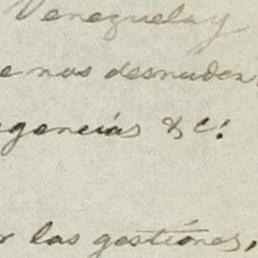 Venezuela y
e nos desnuden
agencias &c.
r las gestiones,